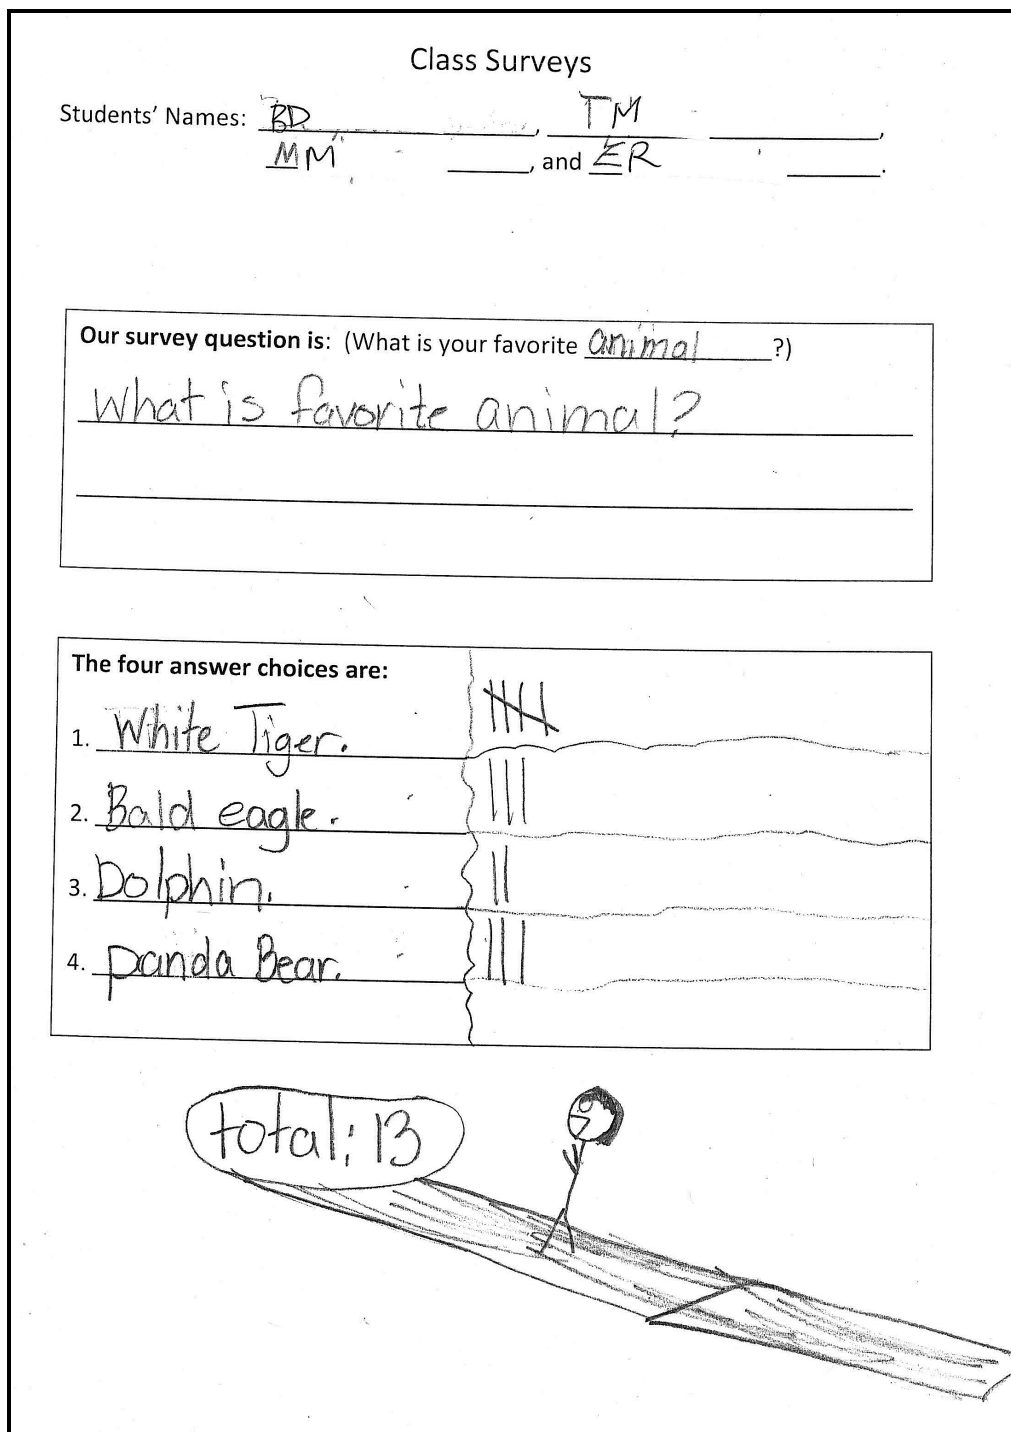 Class Surveys
Students' Names: BD, TM,
MM, and ER.
Our survey question is: (What is your favorite animal?)
What is favorite animal?
The four answer choices are:
1. White Tiger.
2. Bald eagle.
3. Dolphin.
4. panda Bear.
total: 13